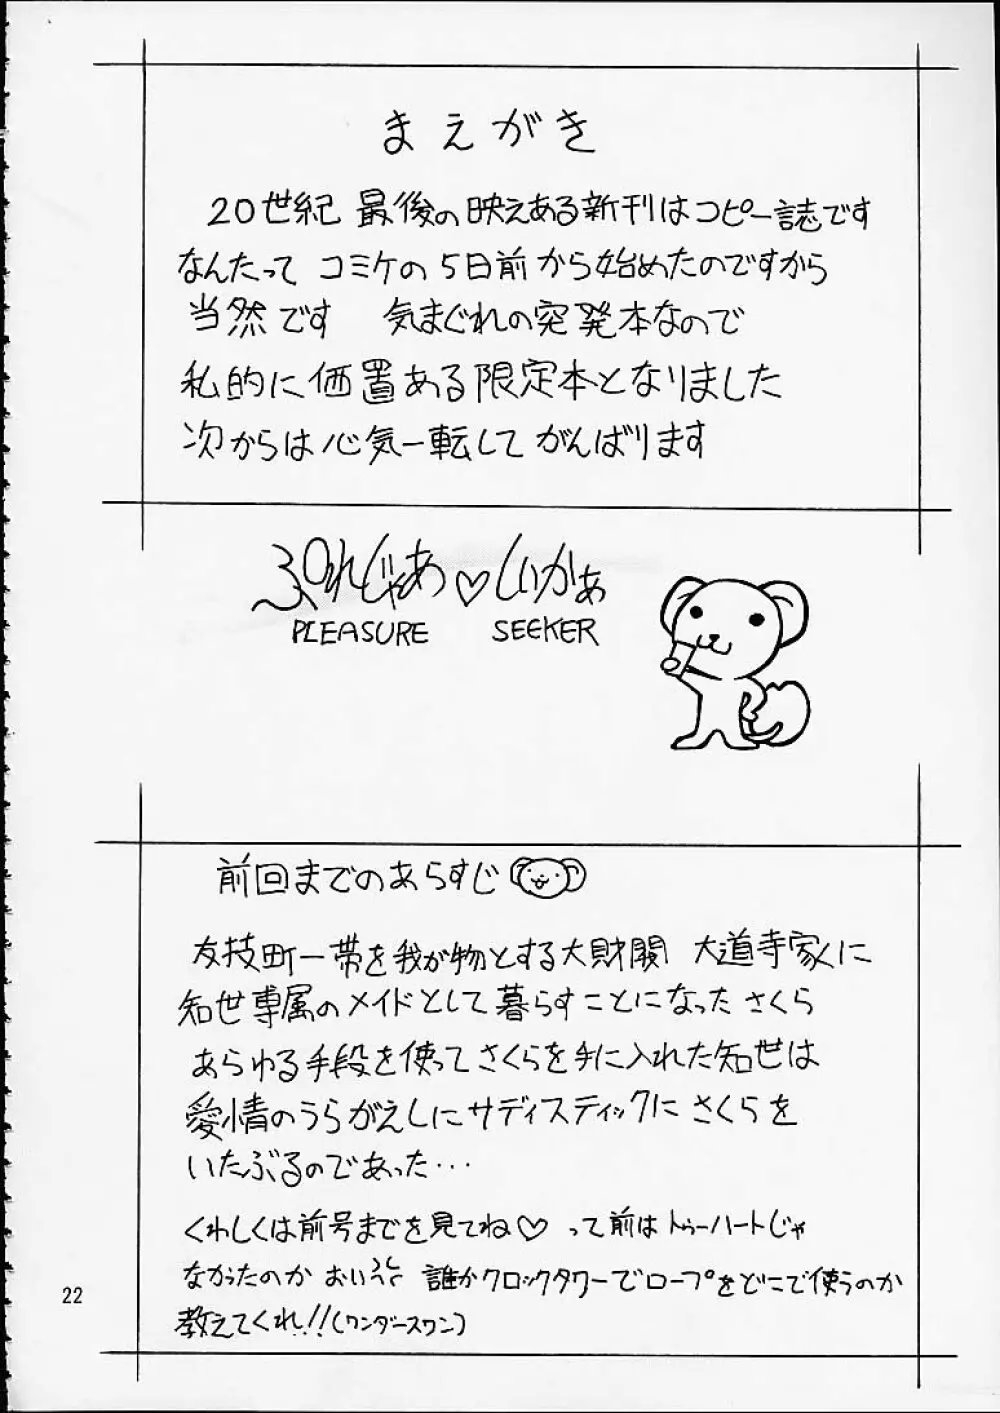 まえがき
20世紀 最後の映えある新刊はコピー誌です
なんたって コミケの5日前から始めたのですから
当然です 気まぐれの突発本なので
私的に価置ある限定本となりました
次からは心気一転して がんばります
ぷれじゃあ♡しいかぁ
PLEASURE SEEKER
前回までのあらすじ
友枝町一帯を我が物とする大財閥 大道寺家に
知世専属のメイドとして暮らすことになった さくら
あらゆる手段を使ってさくらを手に入れた知世は
愛情のうらがえしにサディスティックに さくらを
いたぶるのであった…
くわしくは前号までを見てね♡ って前はトゥーハートじゃ
なかったのか おいっ 誰かクロックタワーでロープをどこで使うのか
教えてくれ!!(ワンダースワン)
22